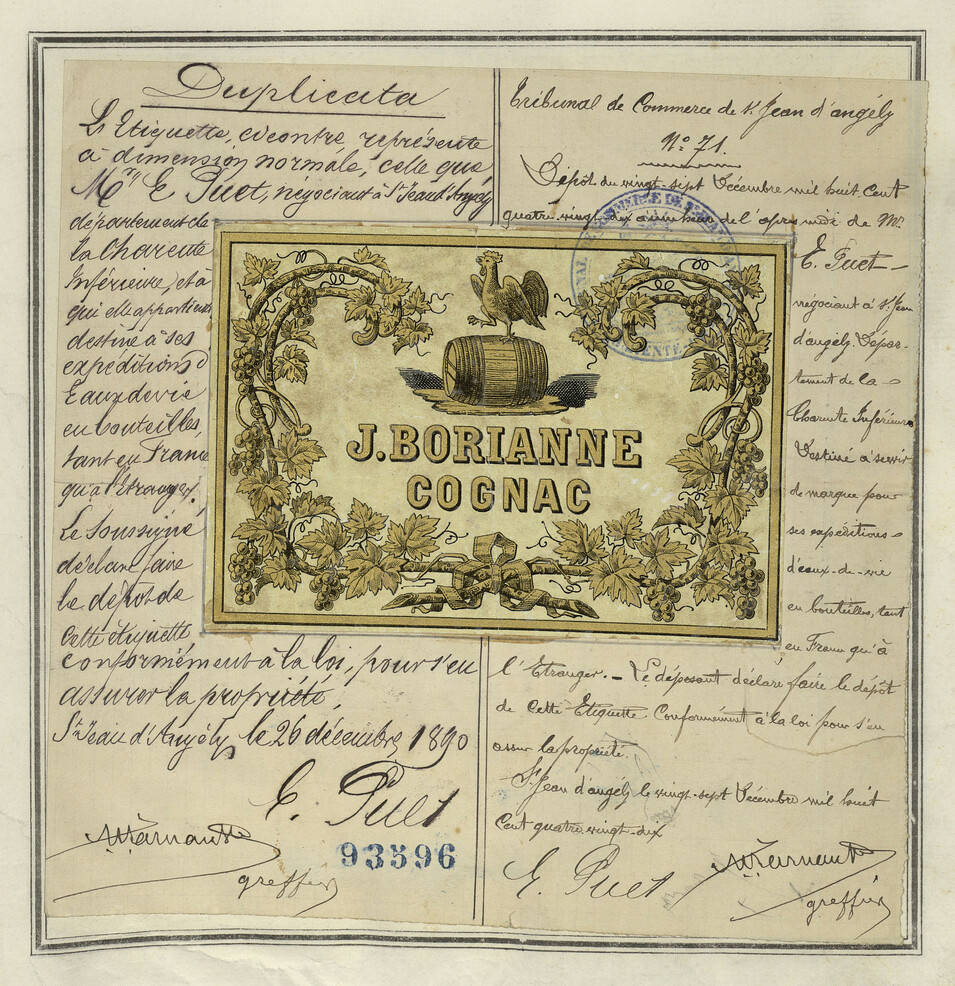 Duplicata
L'Etiquette, ci contre, représente
à dimension normale, celle que
Mr E Puet, négociant à St Jean d'Angély
département de
la Charente
Inférieure, et à
qui elle appartient
destine à ses
expéditions d'
Eaux de vie
en bouteilles,
tant en France
qu'à l'Etranger.
Le soussigné
déclare faire
le dépôt de
cette étiquette
conformément à la loi, pour s'en
assurer la propriété,
St Jean d'Angély, le 26 décembre 1890
E. Puet
greffier
93596
Tribunal de Commerce de St Jean d'angély
No 71.
Dépôt du vingt-sept Décembre mil huit cent
quatre vingt dix heure de l'après midi de Mr
E. Puet
négociant à St Jean
d'angély Dépar-
tement de la
Charente Inférieure
Destiné à servir
de marque pour
ses expéditions
d'eaux-de-vie
en bouteilles, tant
en France qu'à
l'Etranger. – Le déposant déclare faire le dépôt
de Cette Etiquette Conformément à la loi pour s'en
assurer la propriété.
St Jean d'angély le vingt-sept Décembre mil huit
Cent quatre vingt-dix
E. Puet
greffier
J. BORIANNE
COGNAC